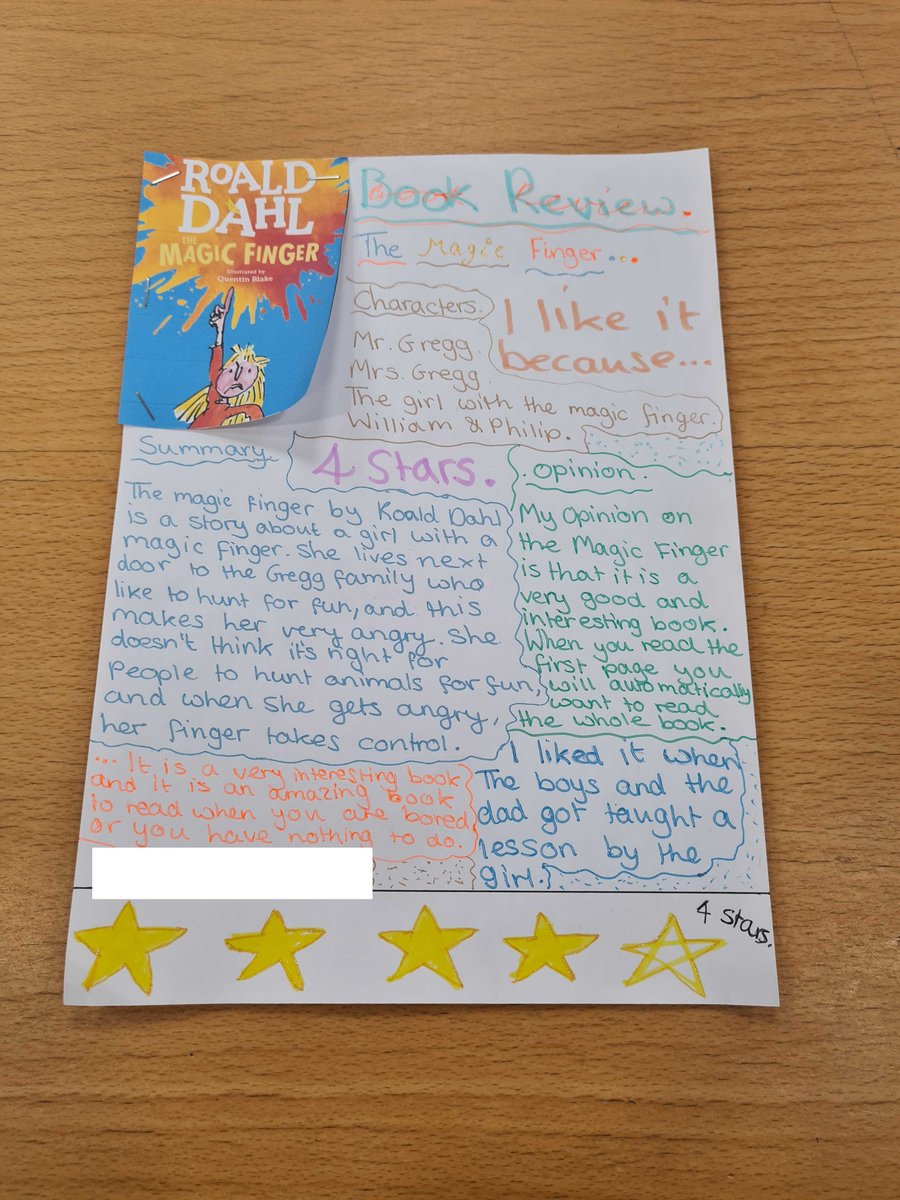 ROALD
DAHL
THE
MAGIC FINGER
Illustrated by
Quentin Blake
Book Review.
The Magic Finger...
Characters.
Mr. Gregg.
Mrs. Gregg.
The girl with the magic finger.
William & Philip.
I like it
because...
4 Stars.
Summary
The magic finger by Roald Dahl
is a story about a girl with a
magic finger. She lives next
door to the Gregg family who
like to hunt for fun, and this
makes her very angry. She
doesn't think it's right for
people to hunt animals for fun,
and when she gets angry,
her finger takes control.
Opinion.
My Opinion on
the Magic Finger
is that it is a
very good and
interesting book.
When you read the
first page you
will automatically
want to read
the whole book.
... It is a very interesting book
and it is an amazing book
to read when you are bored
or you have nothing to do.
I liked it when
The boys and the
dad got taught a
lesson by the
girl.
4 stars.